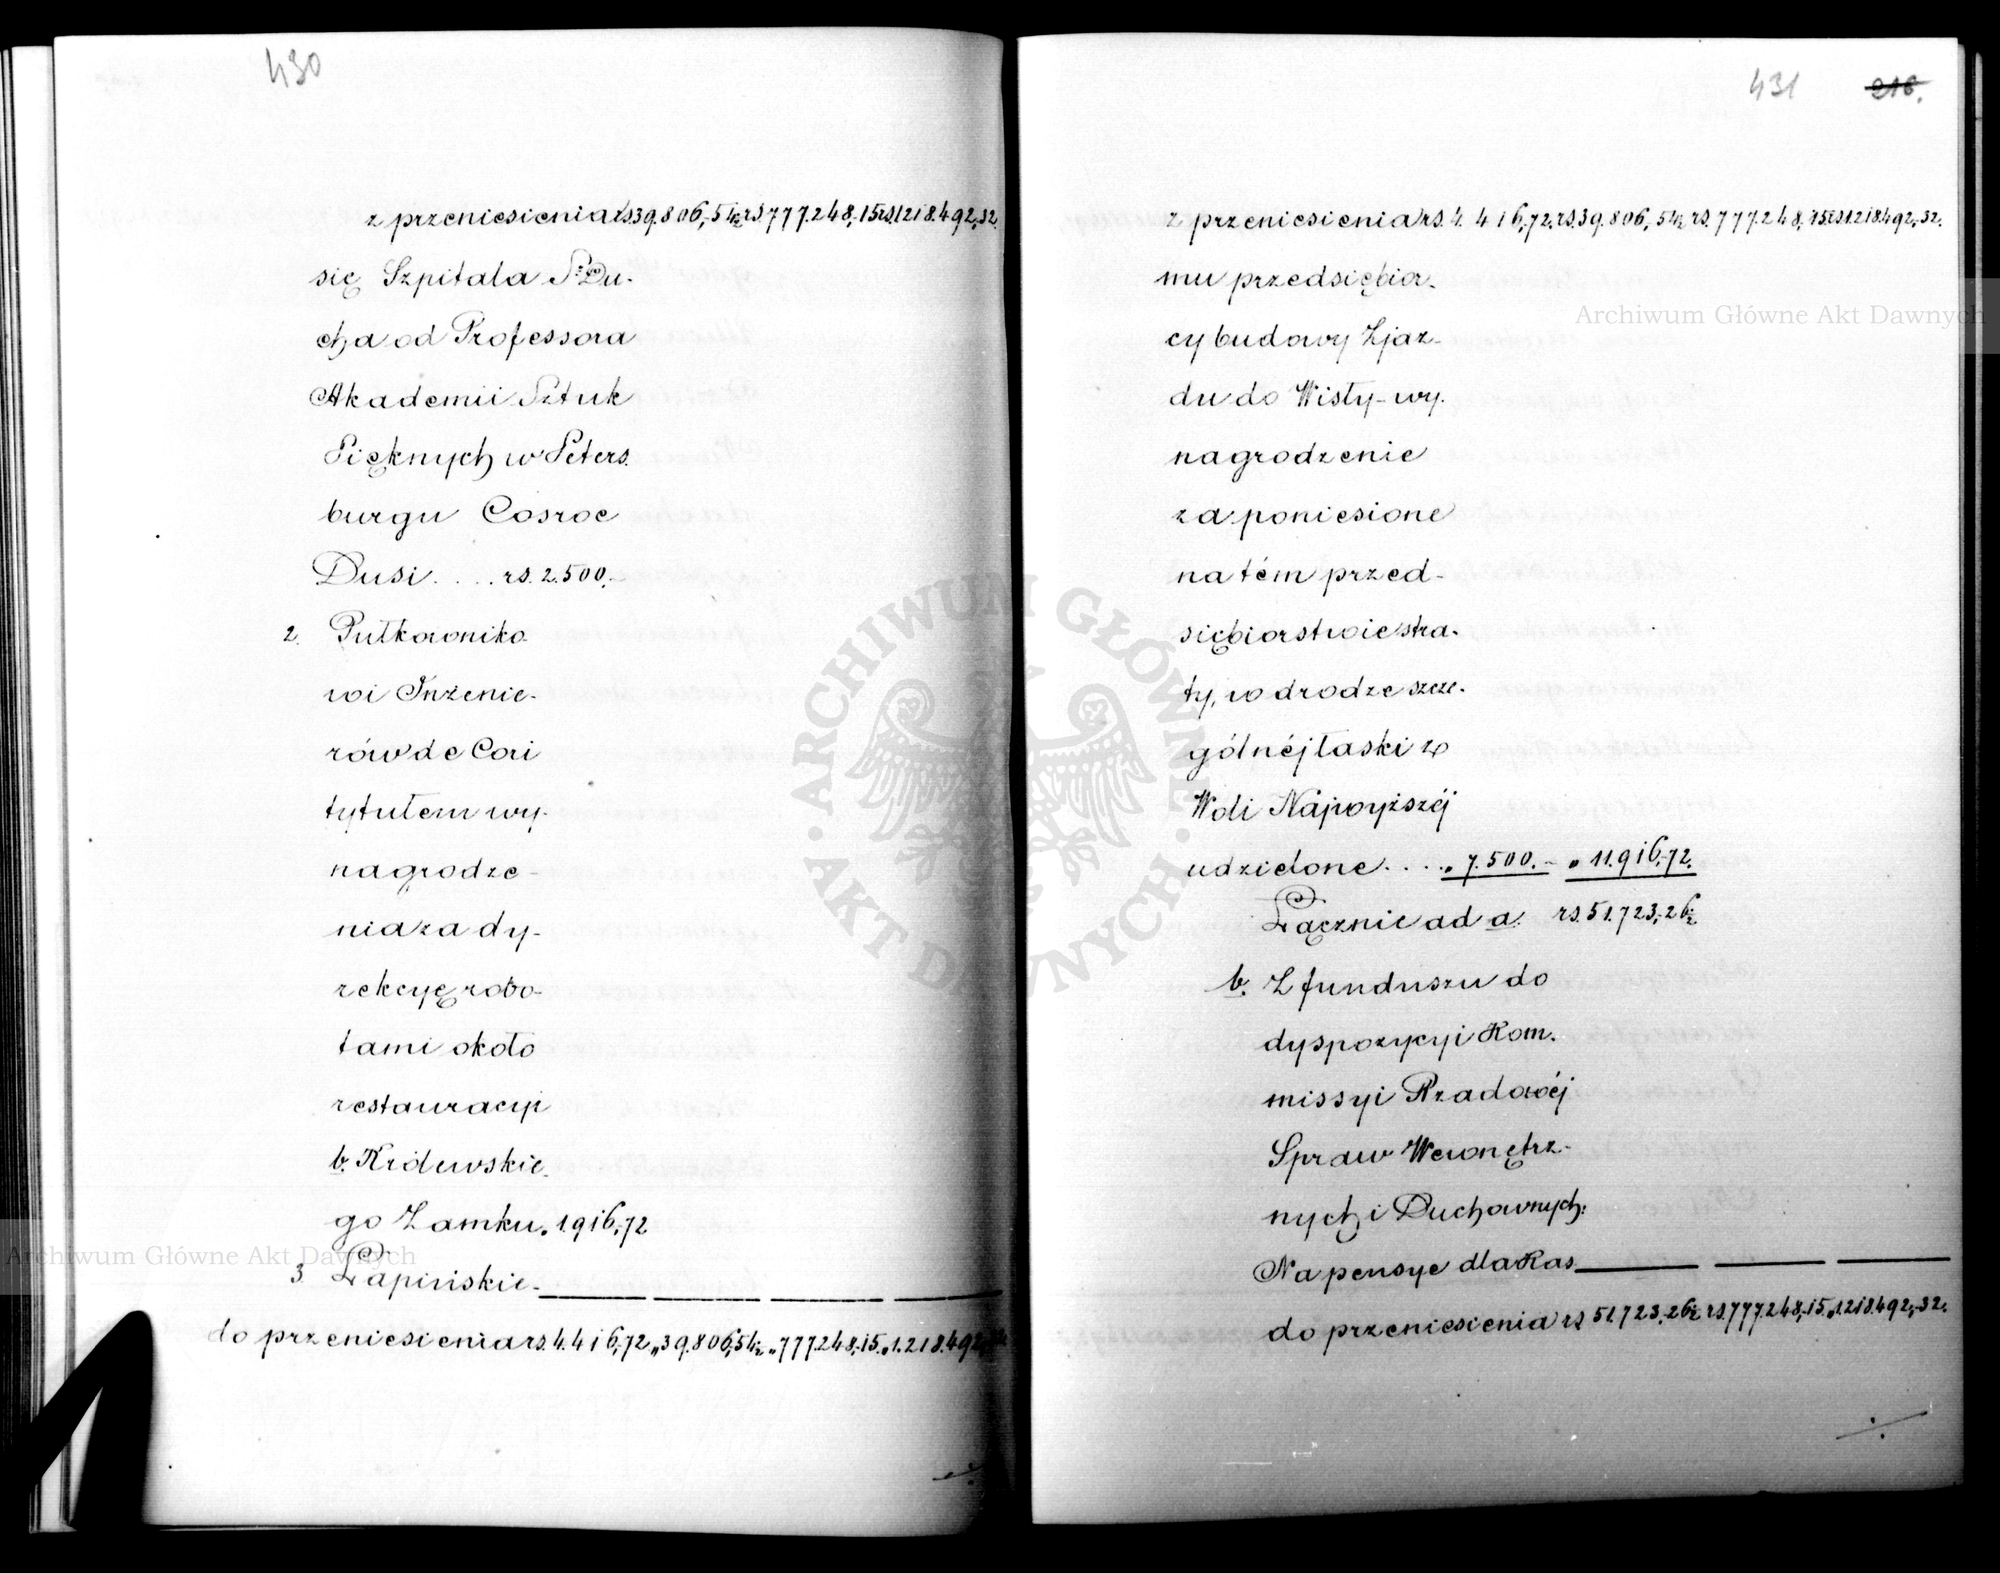 430
z przeniesienia rs39.806,54½ rs.777.248,15 rs1.218.492,32.
się Szpitala Śgo Du-
cha od Professora
Akademii Sztuk
Pięknych w Peters
burgu Cosroe
Dusi . . . . rs. 2.500.-
2. Pułkowniko
wi Inżenie-
rów de Cori
tytułem wy-
nagrodze-
nia za dy-
rekcyę robo-
tami około
restauracyi
b. Królewskie-
go Zamku „ 1.916,72
3. Łapińskie-
do przeniesienia rs. 4.416,72 „ 39.806,54½ „ 777.248,15 „ 1.218.492,
431 216.
z przeniesienia rs. 4.416,72. rs.39.806,54½ rs.777.248,15 rs1.218.492,32.
mu przedsiębior-
cy budowy Zjaz-
du do Wisły – wy-
nagrodzenie
za poniesione
na tém przed-
siębiorstwie stra-
ty, w drodze szcze-
gólnéj łaski z
Woli Najwyższéj
udzielone . . . . „ 7.500.– „ 11.916,72.
Łącznie ad a. rs.51.723,26½
b. Z funduszu do
dyspozycyi Kom-
missyi Rządowéj
Spraw Wewnętrz-
nych i Duchownych:
Na pensye dla Kas
do przeniesienia rs 51.723,26½ rs.777.248,15 „ 1.218.492,32.
Archiwum Główne Akt Dawnych
Archiwum Główne Akt Dawnych
ARCHIWUM GŁÓWNE · AKT DAWNYCH ·